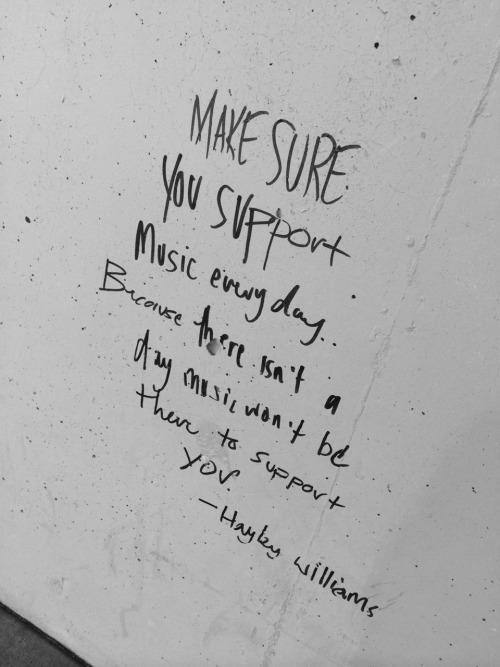 MAKE SURE
YOU SUPPOrt
Music every day..
Because there isn't a
day music won't be
there to support
you
—Hayley williams